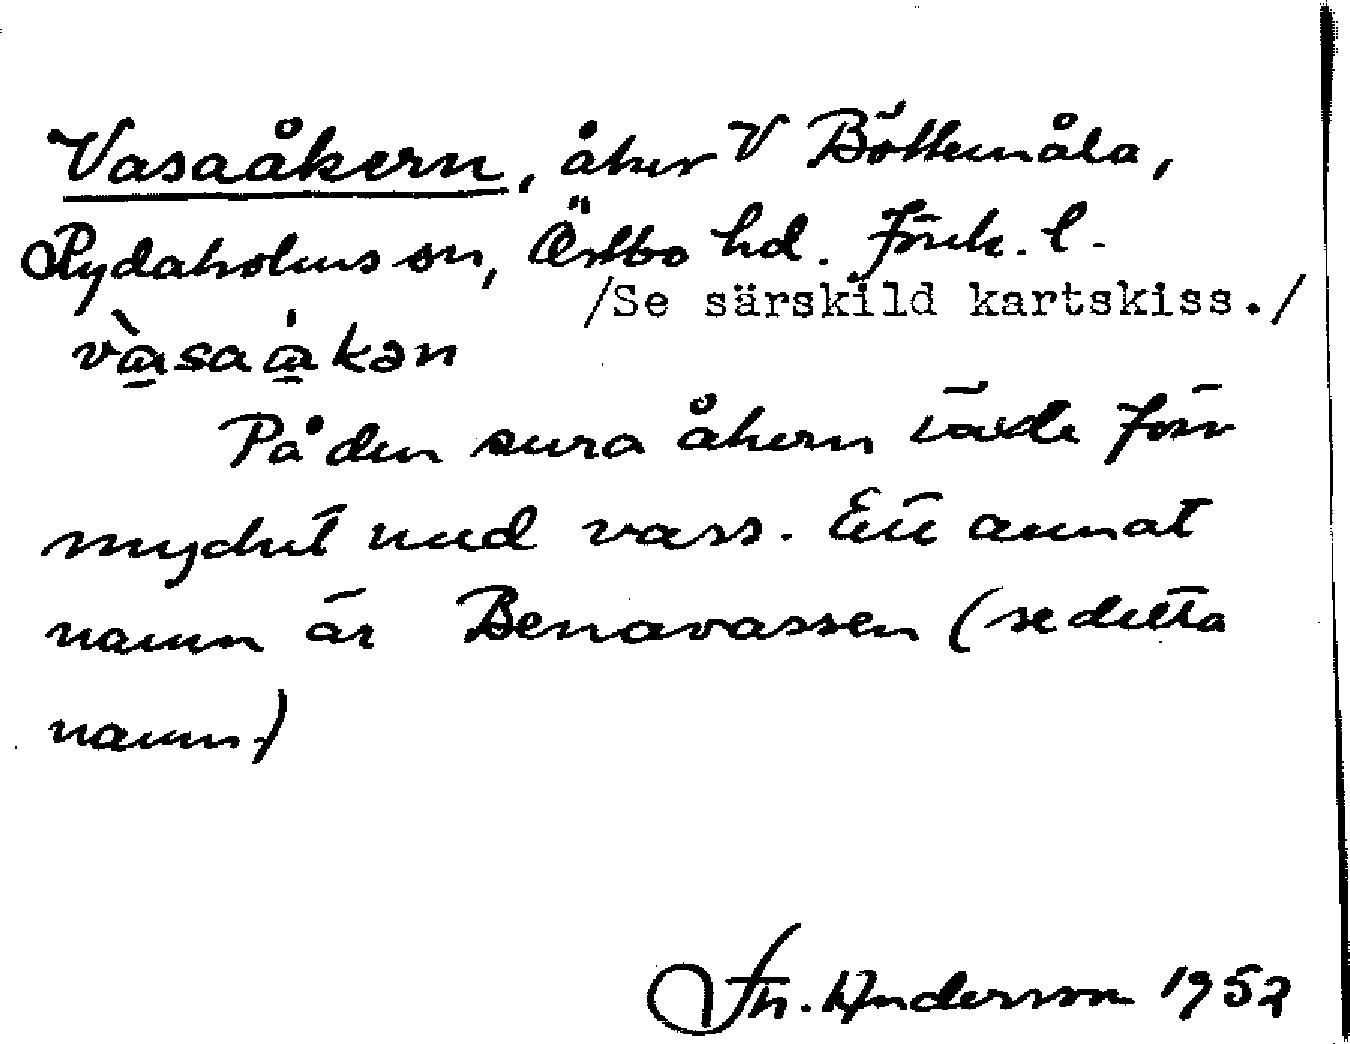 Vasaåkern, åker V Böttemåla,
Rydaholms sn, Östbo hd. Jönk. l.
/Se särskild kartskiss./
På den sura åkern växte förr
mycket med vass. Ett annat
namn är Benavassen (se detta
namn.)
Th. Anderson 1952